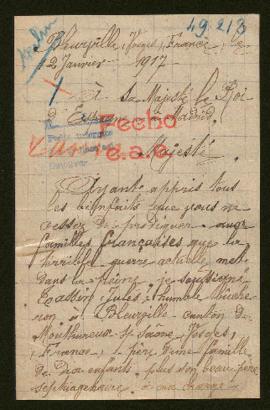 49.213
Bleurville, Vosges, France, le
2 Janvier 1917
A Sa Majesté le Roi
d'Espagne à Madrid.
Fecho
e.a.e.
Majesté
Ayant appris tous
les bienfaits que vous ne
cessez de prodiguer aux
familles françaises que la
terrible guerre actuelle met
dans la peine, je soussigné
Jules, humble bûche-
ron à Bleurville canton de
Monthureux s/ Saône, Vosges,
France, père d'une famille
de enfants, plus son beau-père
septuagénaire à ma charge